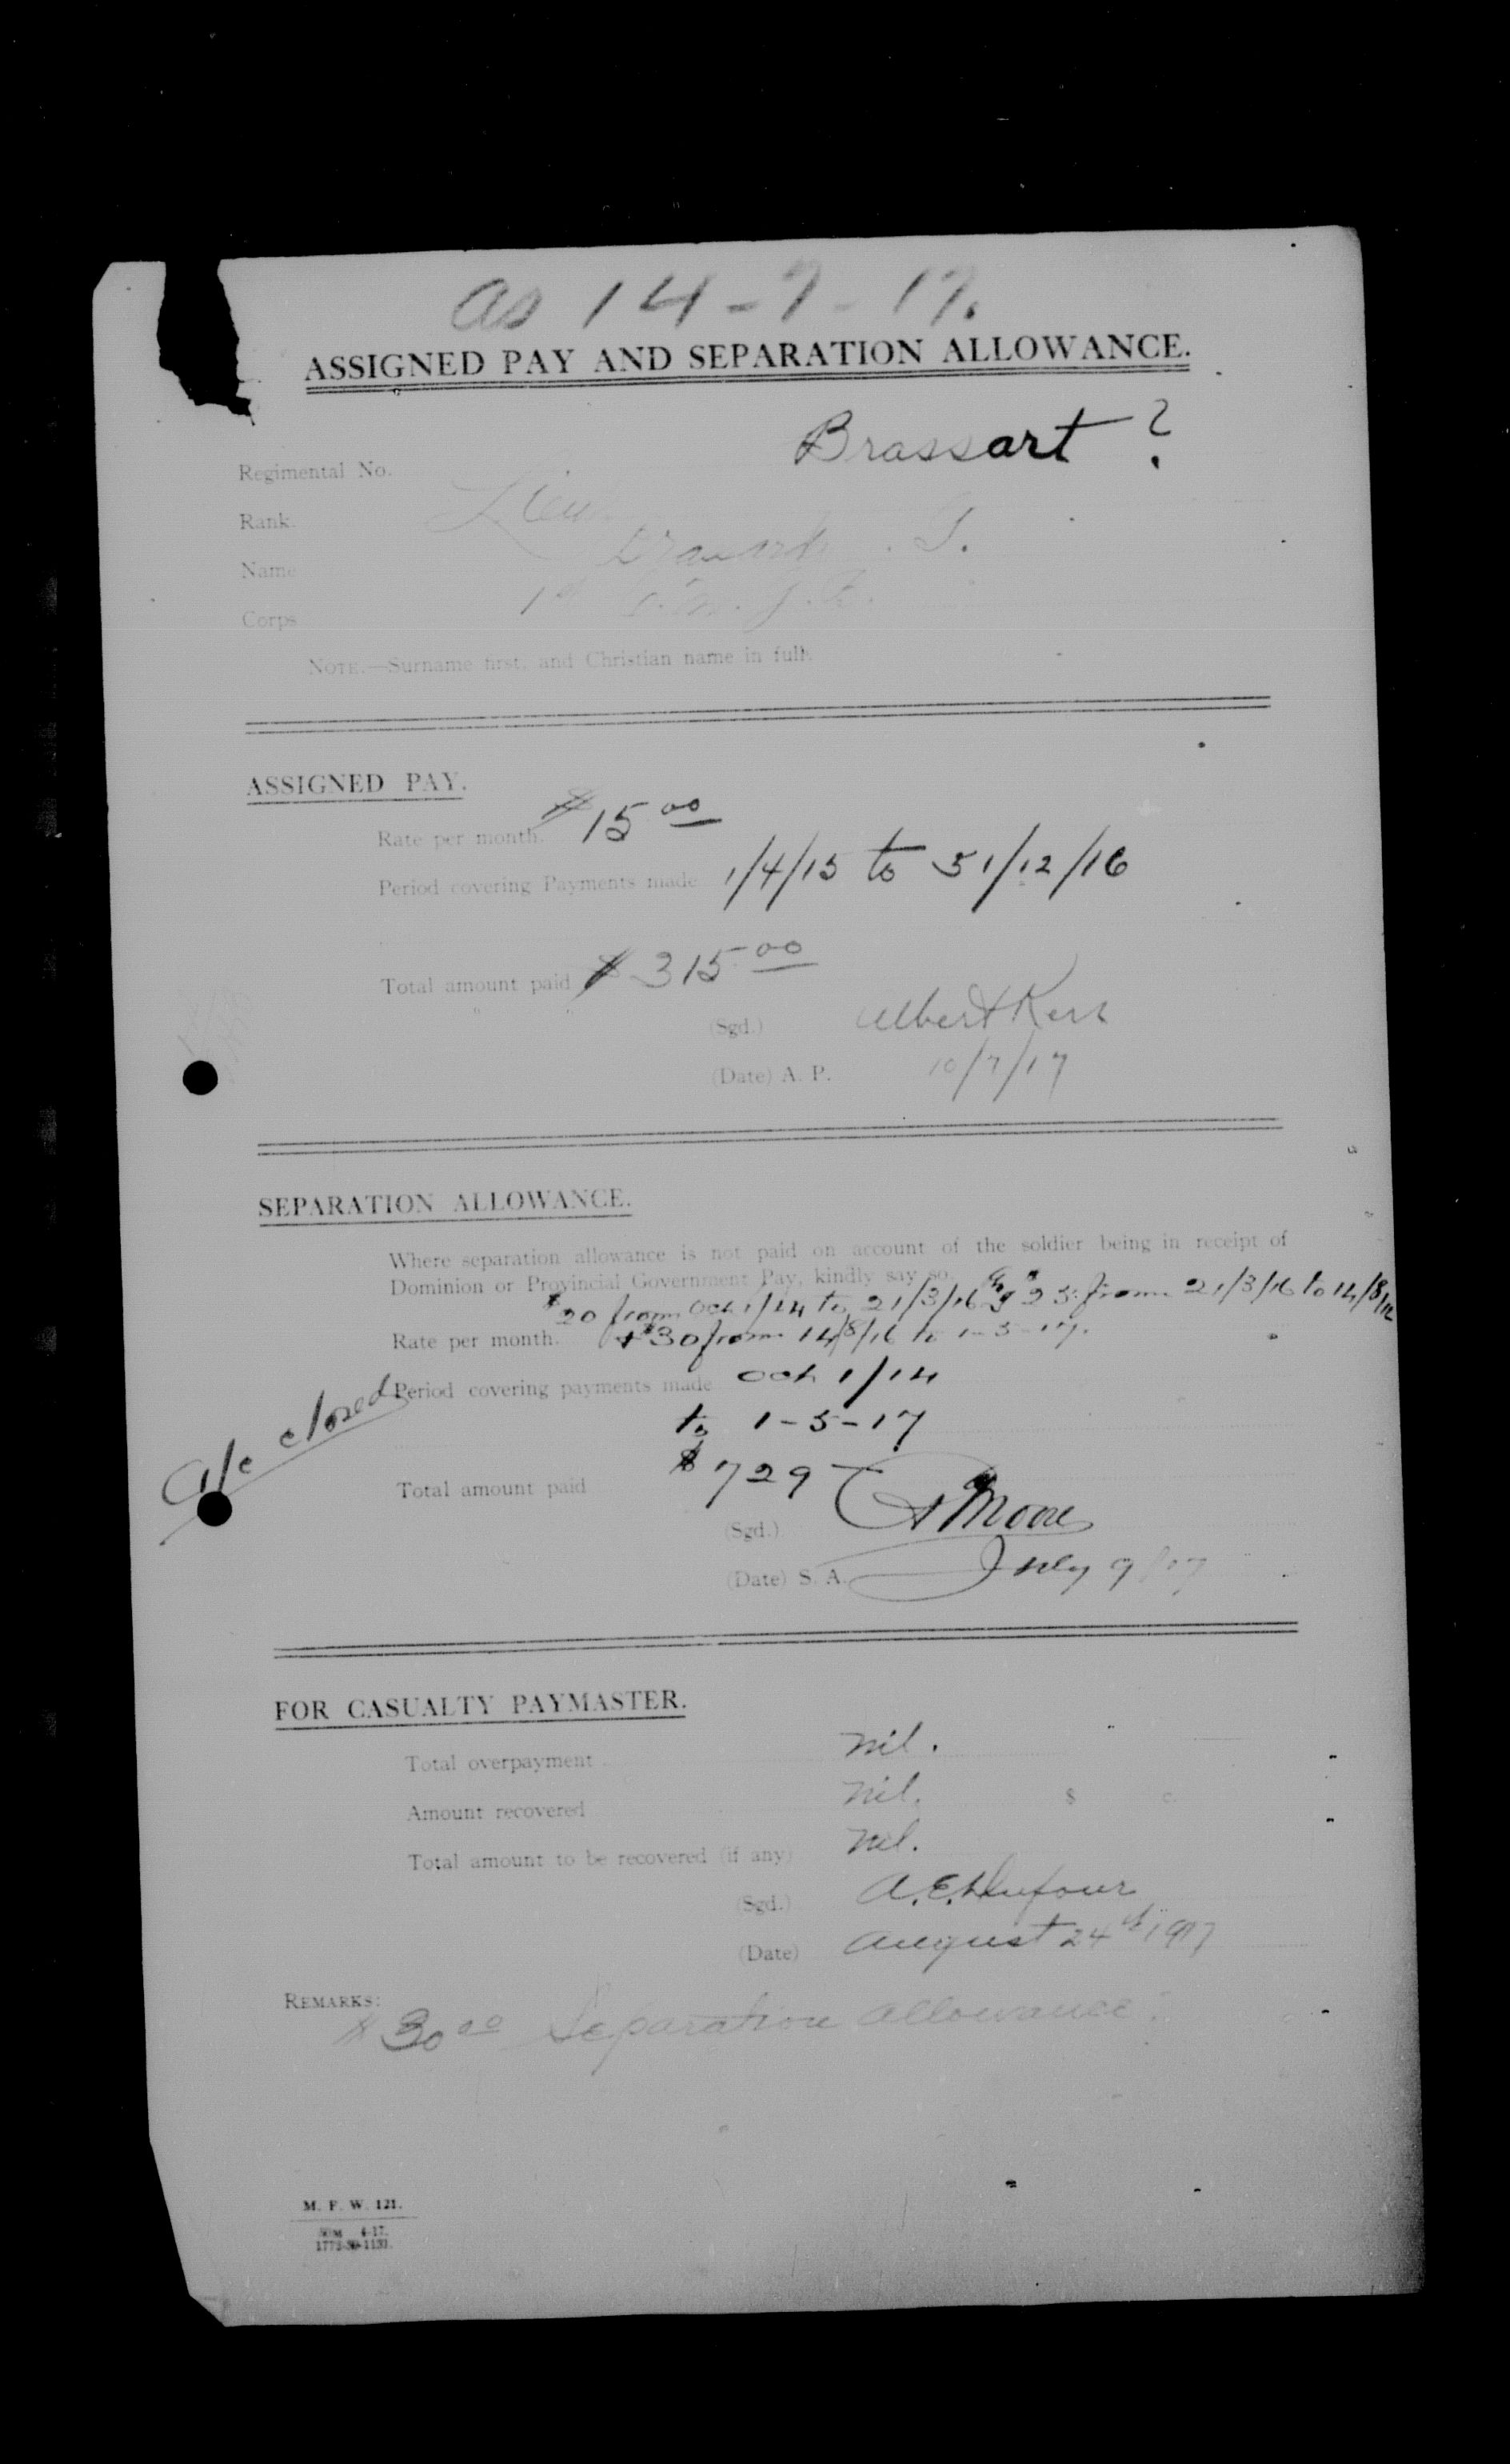 as 14-7-17.
ASSIGNED PAY AND SEPARATION ALLOWANCE.
Brassart ?
Regimental No.
Rank. Lieut
Name T.
Corps 1st
NOTE.—Surname first, and Christian name in full.
ASSIGNED PAY.
Rate per month. $15 00
Period covering Payments made 1/4/15 to 31/12/16
Total amount paid $ 315 00
(Sgd.) Albert Kerr
(Date) A. P. 10/7/17
SEPARATION ALLOWANCE.
Where separation allowance is not paid on account of the soldier being in receipt of
Dominion or Provincial Government Pay, kindly say so.
$20 from Oct 1/14 to 21/3/16 $25 from 21/3/16 to 14/8/16
Rate per month. + $30 from 14/8/16 to 1-5-17.
Period covering payments made Oct 1/14
a/c closed
to 1-5-17
Total amount paid $729
(Sgd.) Moore
(Date) S. A. July 9/17
FOR CASUALTY PAYMASTER.
Total overpayment nil.
Amount recovered nil. $ c.
Total amount to be recovered (if any) nil.
(Sgd.) A.E. Dufour
(Date) August 24th 1917
REMARKS:
$30 00 Separation allowance.
M. F. W. 121.
50M 4-17.